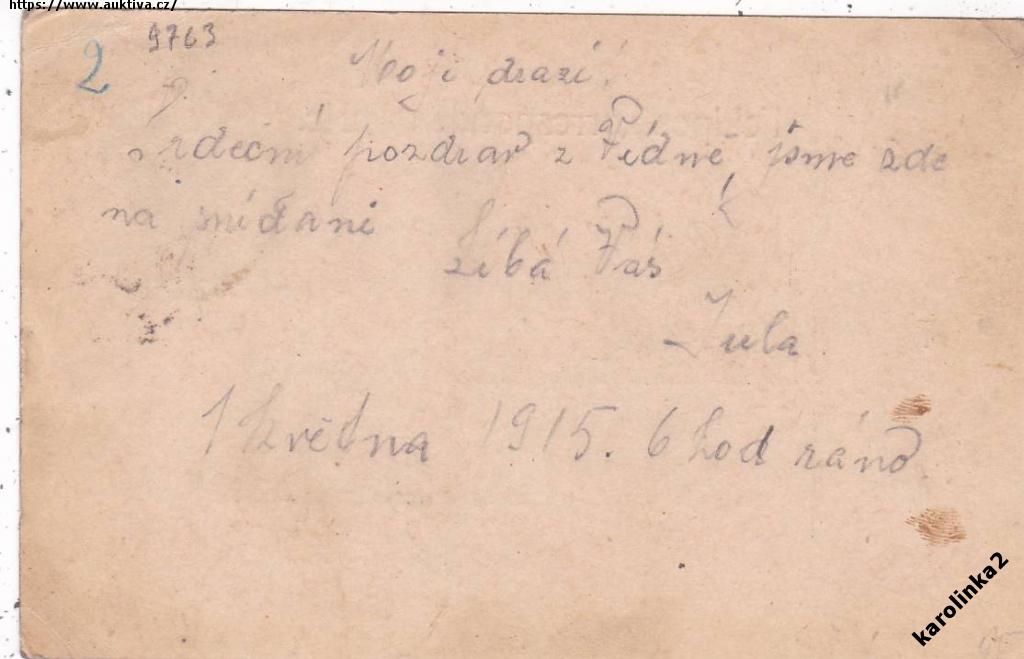 https://www.auktiva.cz/
2 9763
Moji drazí!
Srdečný pozdrav z Vídně jsme zde
na snídani
Líbá Vás
Jula
1 Května 1915. 6 hod ráno
karolinka2